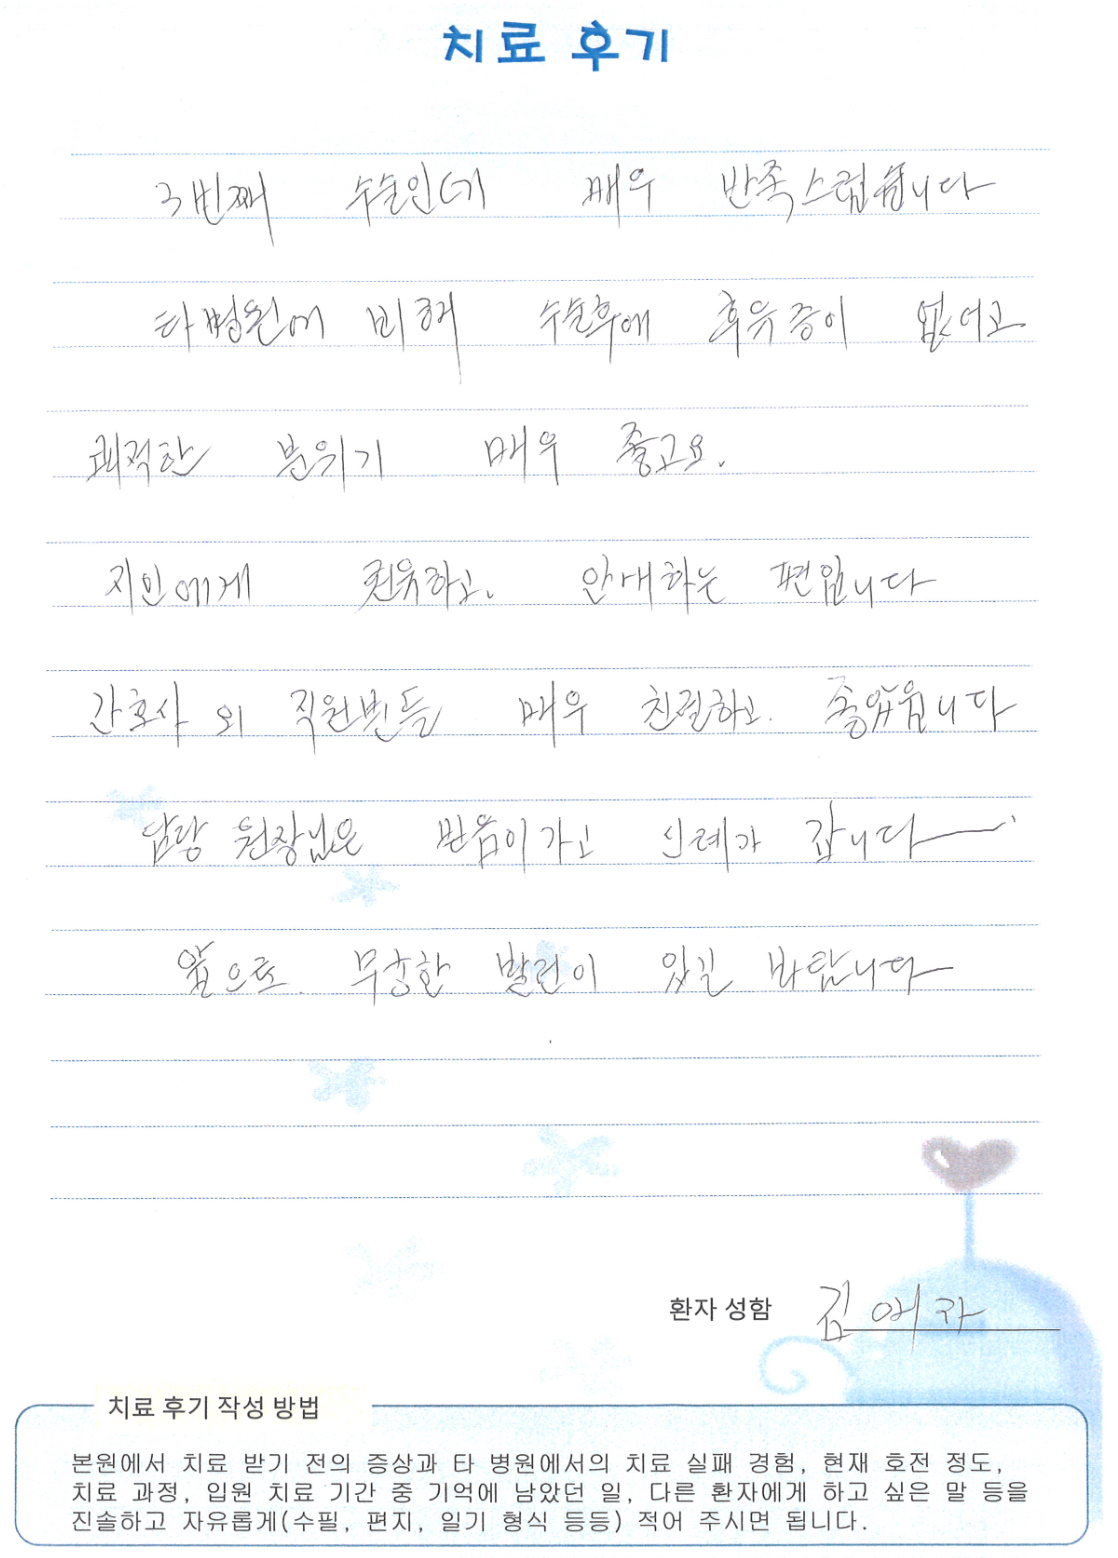 치료 후기
3번째 수술인데 매우 반족스럽습니다
타병원에 비해 수술후에 후유증이 없어고.
쾌적한 분위기 매우 좋고요.
지인에게 권유하고. 안내하는 편입니다
간호사 외 직원분들 매우 친절하고. 좋았읍니다
담당 원장님은 믿음이가고 신뢰가 갑니다
앞으로. 무궁한 발전이 있길 바랍니다
환자 성함 김애자
치료 후기 작성 방법
본원에서 치료 받기 전의 증상과 타 병원에서의 치료 실패 경험, 현재 호전 정도,
치료 과정, 입원 치료 기간 중 기억에 남았던 일, 다른 환자에게 하고 싶은 말 등을
진솔하고 자유롭게(수필, 편지, 일기 형식 등등) 적어 주시면 됩니다.